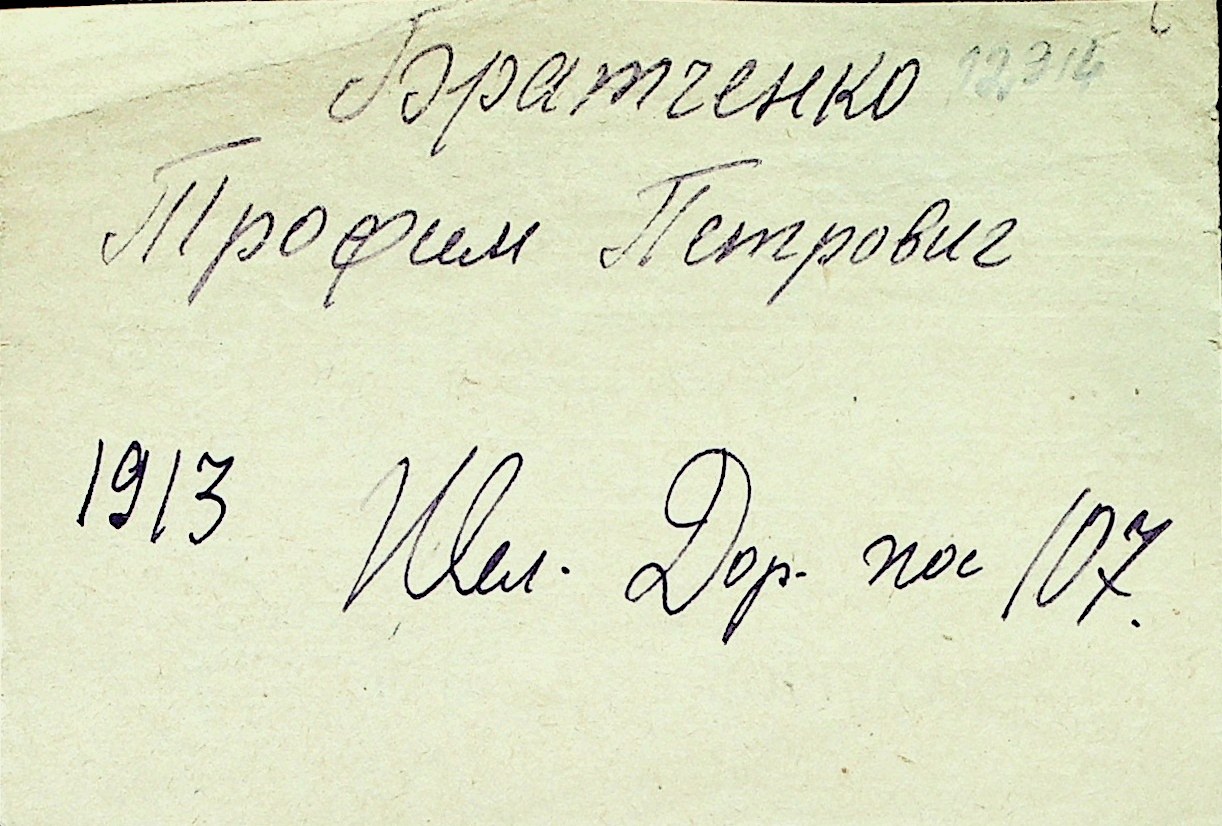 Братченко
Трофим Петрович
1913 Жел. Дор. пос 107.